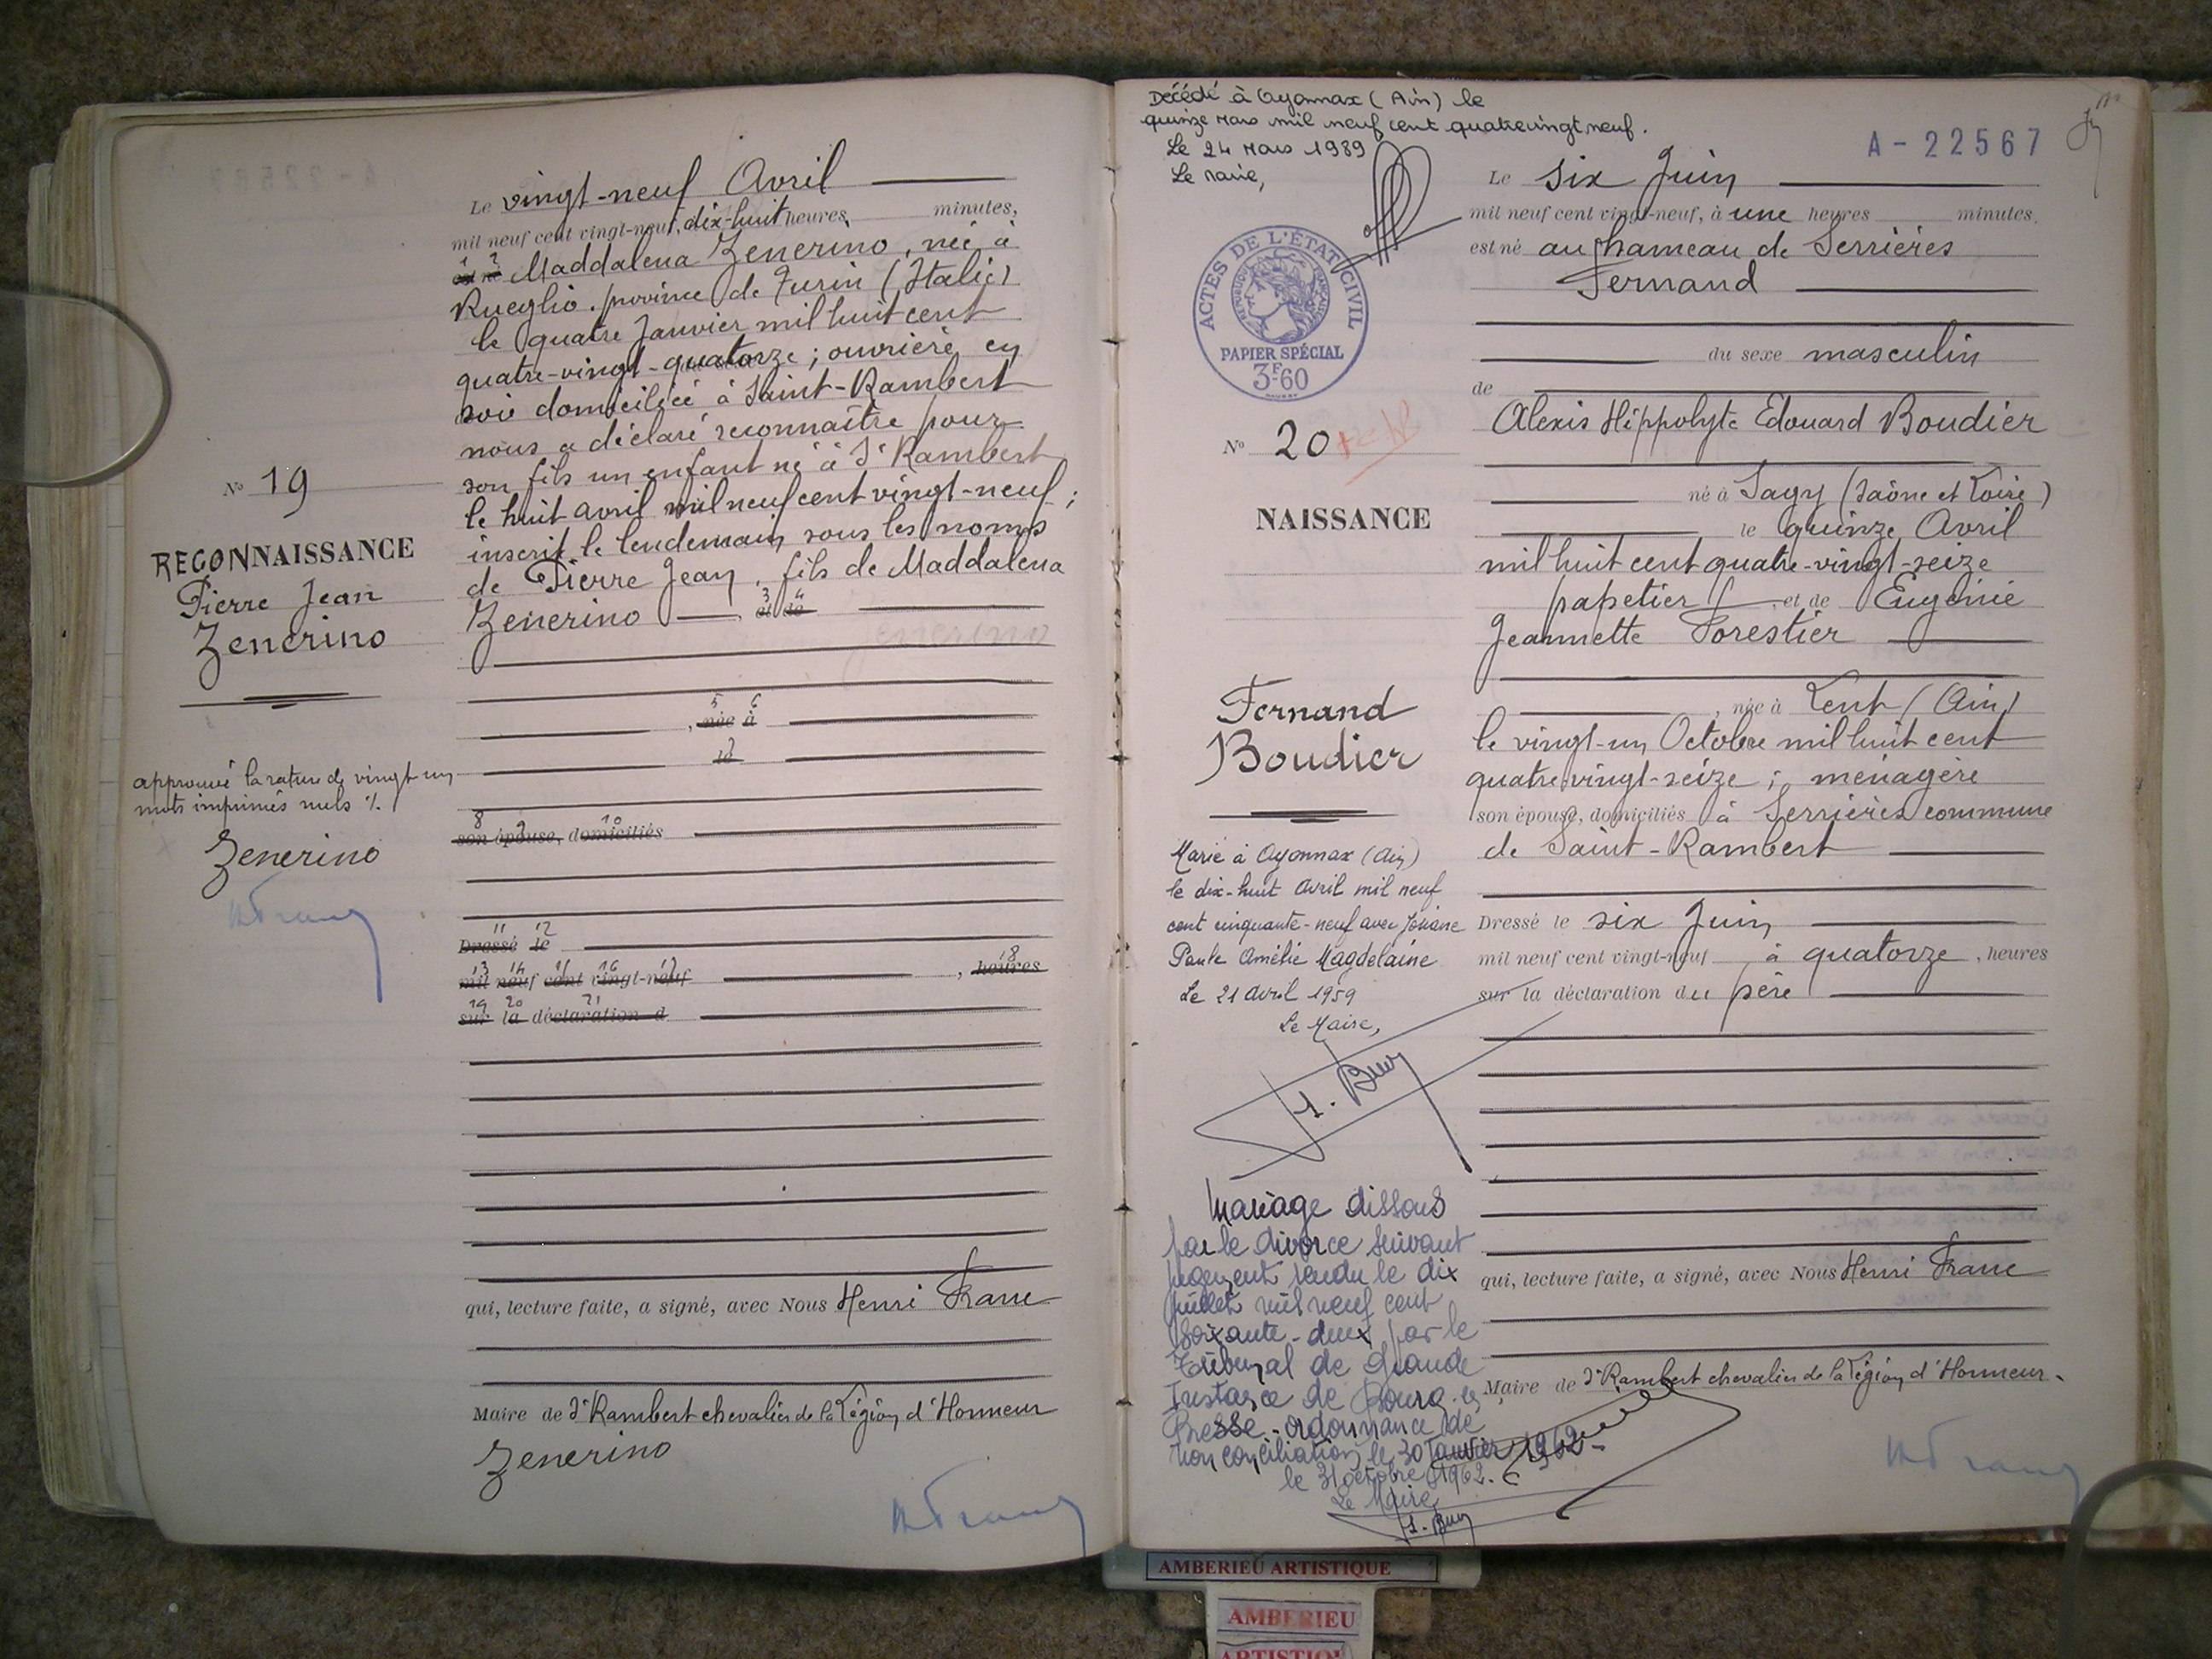 Le vingt-neuf Avril
mil neuf cent vingt-neuf, dix-huit heures, minutes,
1 2
est né Maddalena Zenerino, née à
Rueglio, province de Turin (Italie)
le quatre Janvier mil huit cent
quatre-vingt-quatorze ; ouvrière en
soie domiciliée à Saint-Rambert
nous a déclaré reconnaître pour
son fils un enfant né à St Rambert
le huit avril mil neuf cent vingt-neuf ;
inscrit le lendemain sous les noms
de Pierre Jean, fils de Maddalena
3 4
Zenerino et de
5 6
, née à
7
le
8 9 10
son épouse, domiciliés
11 12
Dressé le
13 14 15 16 17 18
mil neuf cent vingt-neuf , heures
19 20 21
sur la déclaration d
qui, lecture faite, a signé, avec Nous Henri Franc
Maire de St Rambert chevalier de la Légion d'Honneur
Zenerino
HFranc
No 19
RECONNAISSANCE
Pierre Jean
Zenerino
approuvé la rature de vingt un
mots imprimés nuls %.
Zenerino
HFranc
Décédé à Oyonnax (Ain) le
quinze Mars mil neuf cent quatrevingt neuf.
Le 24 Mars 1989
Le Maire,
ACTES DE L'ÉTAT CIVIL
RÉPUBLIQUE FRANÇAISE
PAPIER SPÉCIAL
3F60
No 20
NAISSANCE
Fernand
Boudier
Marié à Oyonnax (Ain)
le dix-huit Avril mil neuf
cent cinquante-neuf avec Josiane
Paule Amélie Magdelaine
Le 21 Avril 1959
Le Maire,
Mariage dissous
par le divorce suivant
jugement rendu le dix
juillet mil neuf cent
soixante-deux par le
Tribunal de Grande
Instance de Bourg en
Bresse - ordonnance de
non conciliation le 30 Janvier 1962 -
le 31 octobre 1962.
Le Maire
A - 22567
Le six Juin
mil neuf cent vingt-neuf, à une heures minutes,
est né au hameau de Serrières
Fernand
du sexe masculin
de
Alexis Hippolyte Edouard Boudier
né à Sagy (Saône et Loire)
le quinze Avril
mil huit cent quatre-vingt-seize
papetier , et de Eugénie
Jeannette Forestier
, née à Lent (Ain)
le vingt-un Octobre mil huit cent
quatre vingt-seize ; ménagère
son épouse, domiciliés à Serrières commune
de Saint-Rambert
Dressé le six Juin
mil neuf cent vingt-neuf à quatorze , heures
sur la déclaration du père
qui, lecture faite, a signé, avec Nous Henri Franc
Maire de St Rambert chevalier de la Légion d'Honneur.
HFranc
AMBERIEU ARTISTIQUE
AMBERIEU
ARTISTIQUE